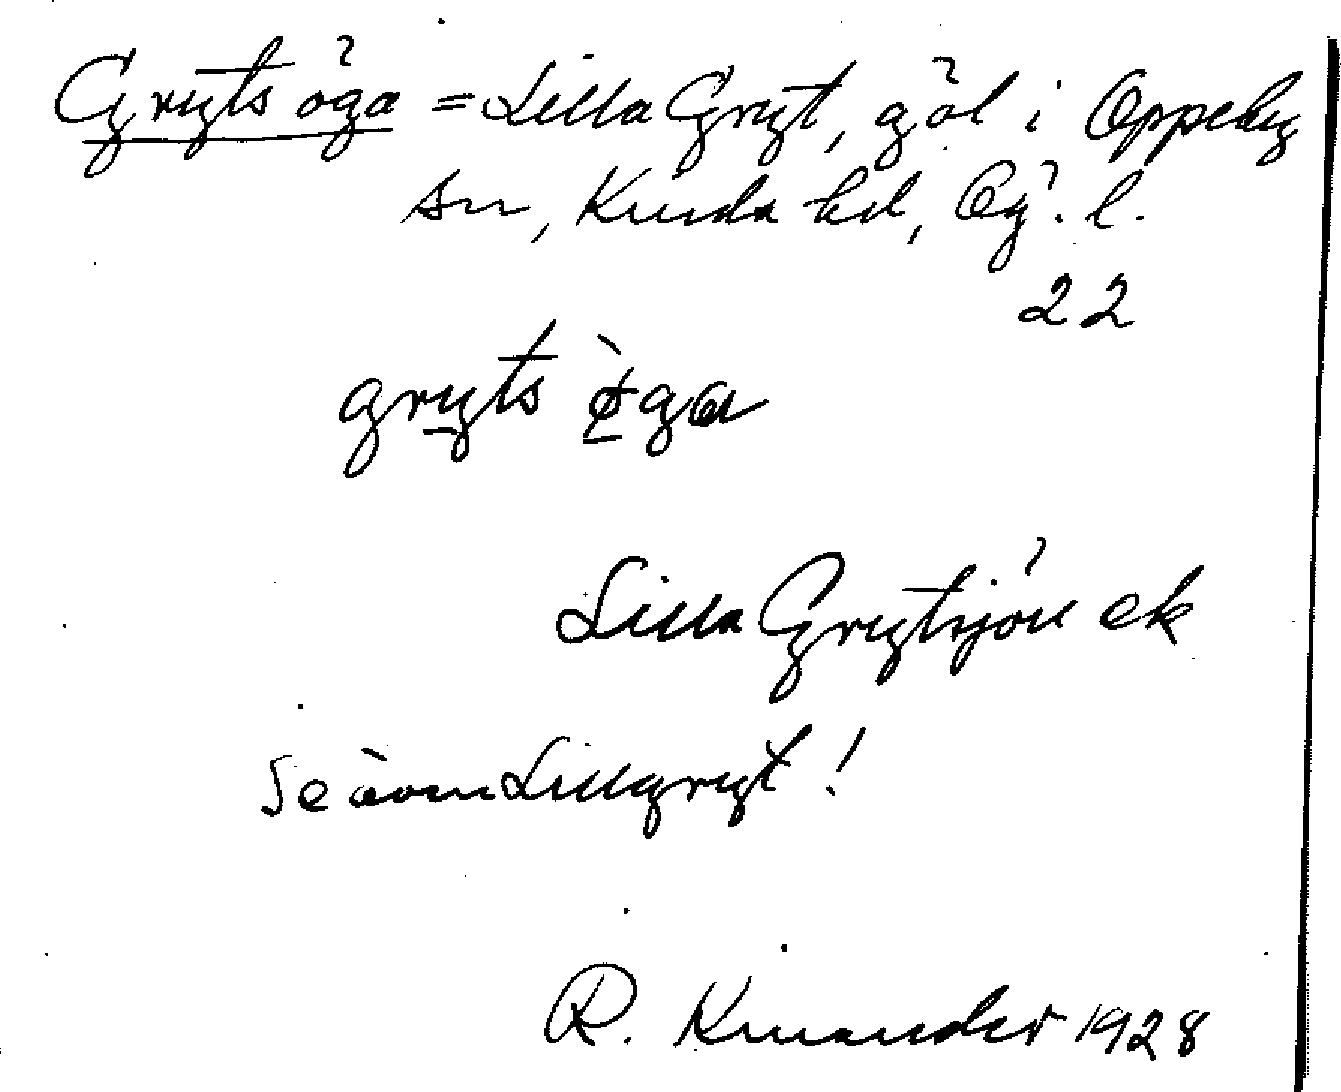 Gryts öga = Lilla Gryt, göl i Oppeby
sn, Kinda hd, Ög. l.
22
gryts
Lilla Grytsjön ek
Se även Lillgryt!
R. Kinander 1928